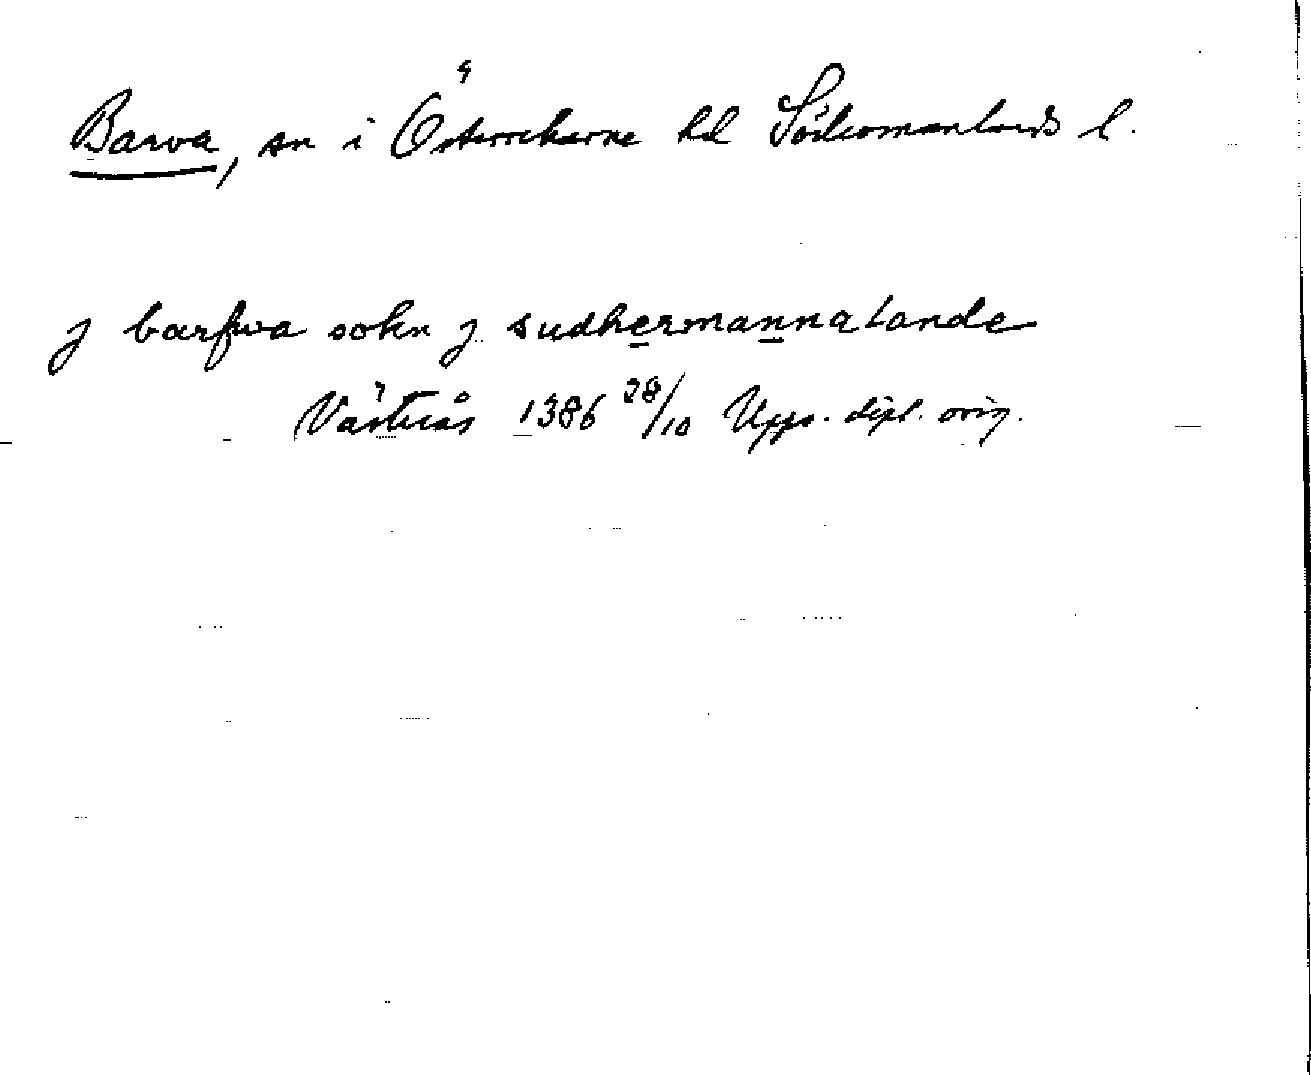 Barva, sn i Österrekarne hd Södermanlands l.
j barfwa sokn j sudhermannalande
Västerås 1386 28/10 Upps. dipl. orig.